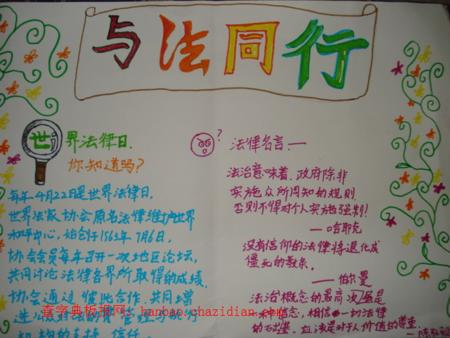 与法同行
世界法律日.
你知道吗?
每年4月22日是世界法律日.
世界法家协会原名法律维护世界
和平中心,始创于1963年7月6日.
协会会员每年召开一次地区论坛
共同讨论法律各界所取得的成绩.
协会通过彼此合作.共同增
?
法律名言一
法治意味着,政府除非
实施众所周知的规则
否则不得对个人实施强制!
—哈耶克
没有信仰的法律将退化成
僵死的教条.
—伯尔曼
法治概念的最高层次是
一种信念,相信一切法律
的 应该是对于人的价值的尊重.
hanbao.chazidian.com